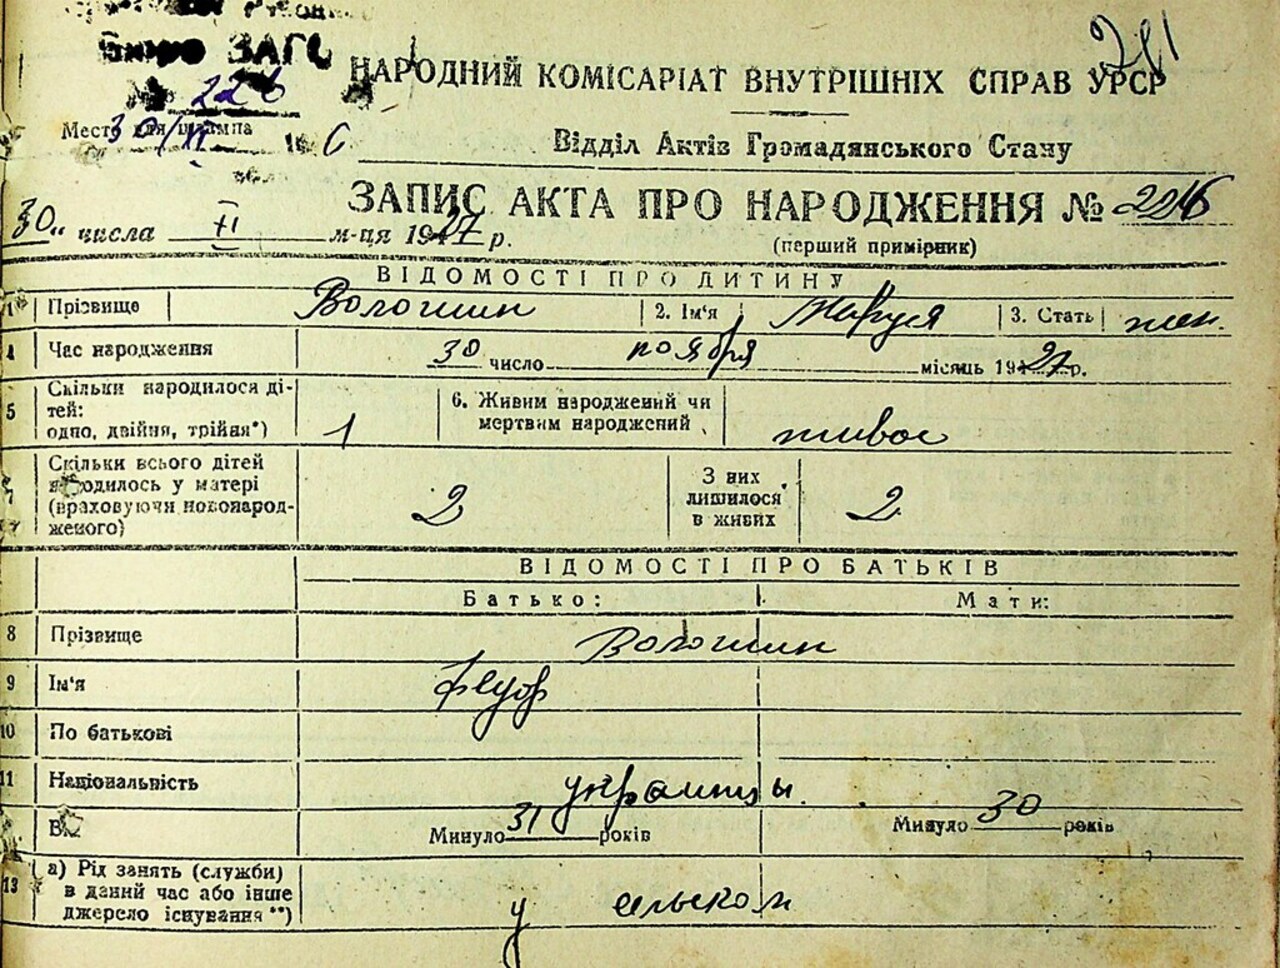 Бюро ЗАГС
№ 226
НАРОДНИЙ КОМІСАРІАТ ВНУТРІШНІХ СПРАВ УРСР
Місце для штампа
30/XI
Відділ Актів Громадянського Стану
ЗАПИС АКТА ПРО НАРОДЖЕННЯ № 226
30 „ числа XI м-ця 1927 р.
(перший примірник)
ВІДОМОСТІ ПРО ДИТИНУ
1 Прізвище Волошин 2. Ім'я Маруся 3. Стать жен.
4 Час народження 30 число ноября місяць 1927 р.
5 Скільки народилося дітей: одно, двійня, трійня*) 1 6. Живим народжений чи мертвим народжений живое
7 Скільки всього дітей народилось у матері (враховуючи новонародженого) 2 З них лишилося в живих 2
ВІДОМОСТІ ПРО БАТЬКІВ
Батько: Мати:
8 Прізвище Волошин
9 Ім'я
10 По батькові
11 Національність украинцы
Вік Минуло 31 років Минуло 30 років
13 а) Рід занять (служби) в даний час або інше джерело існування**) у сельском